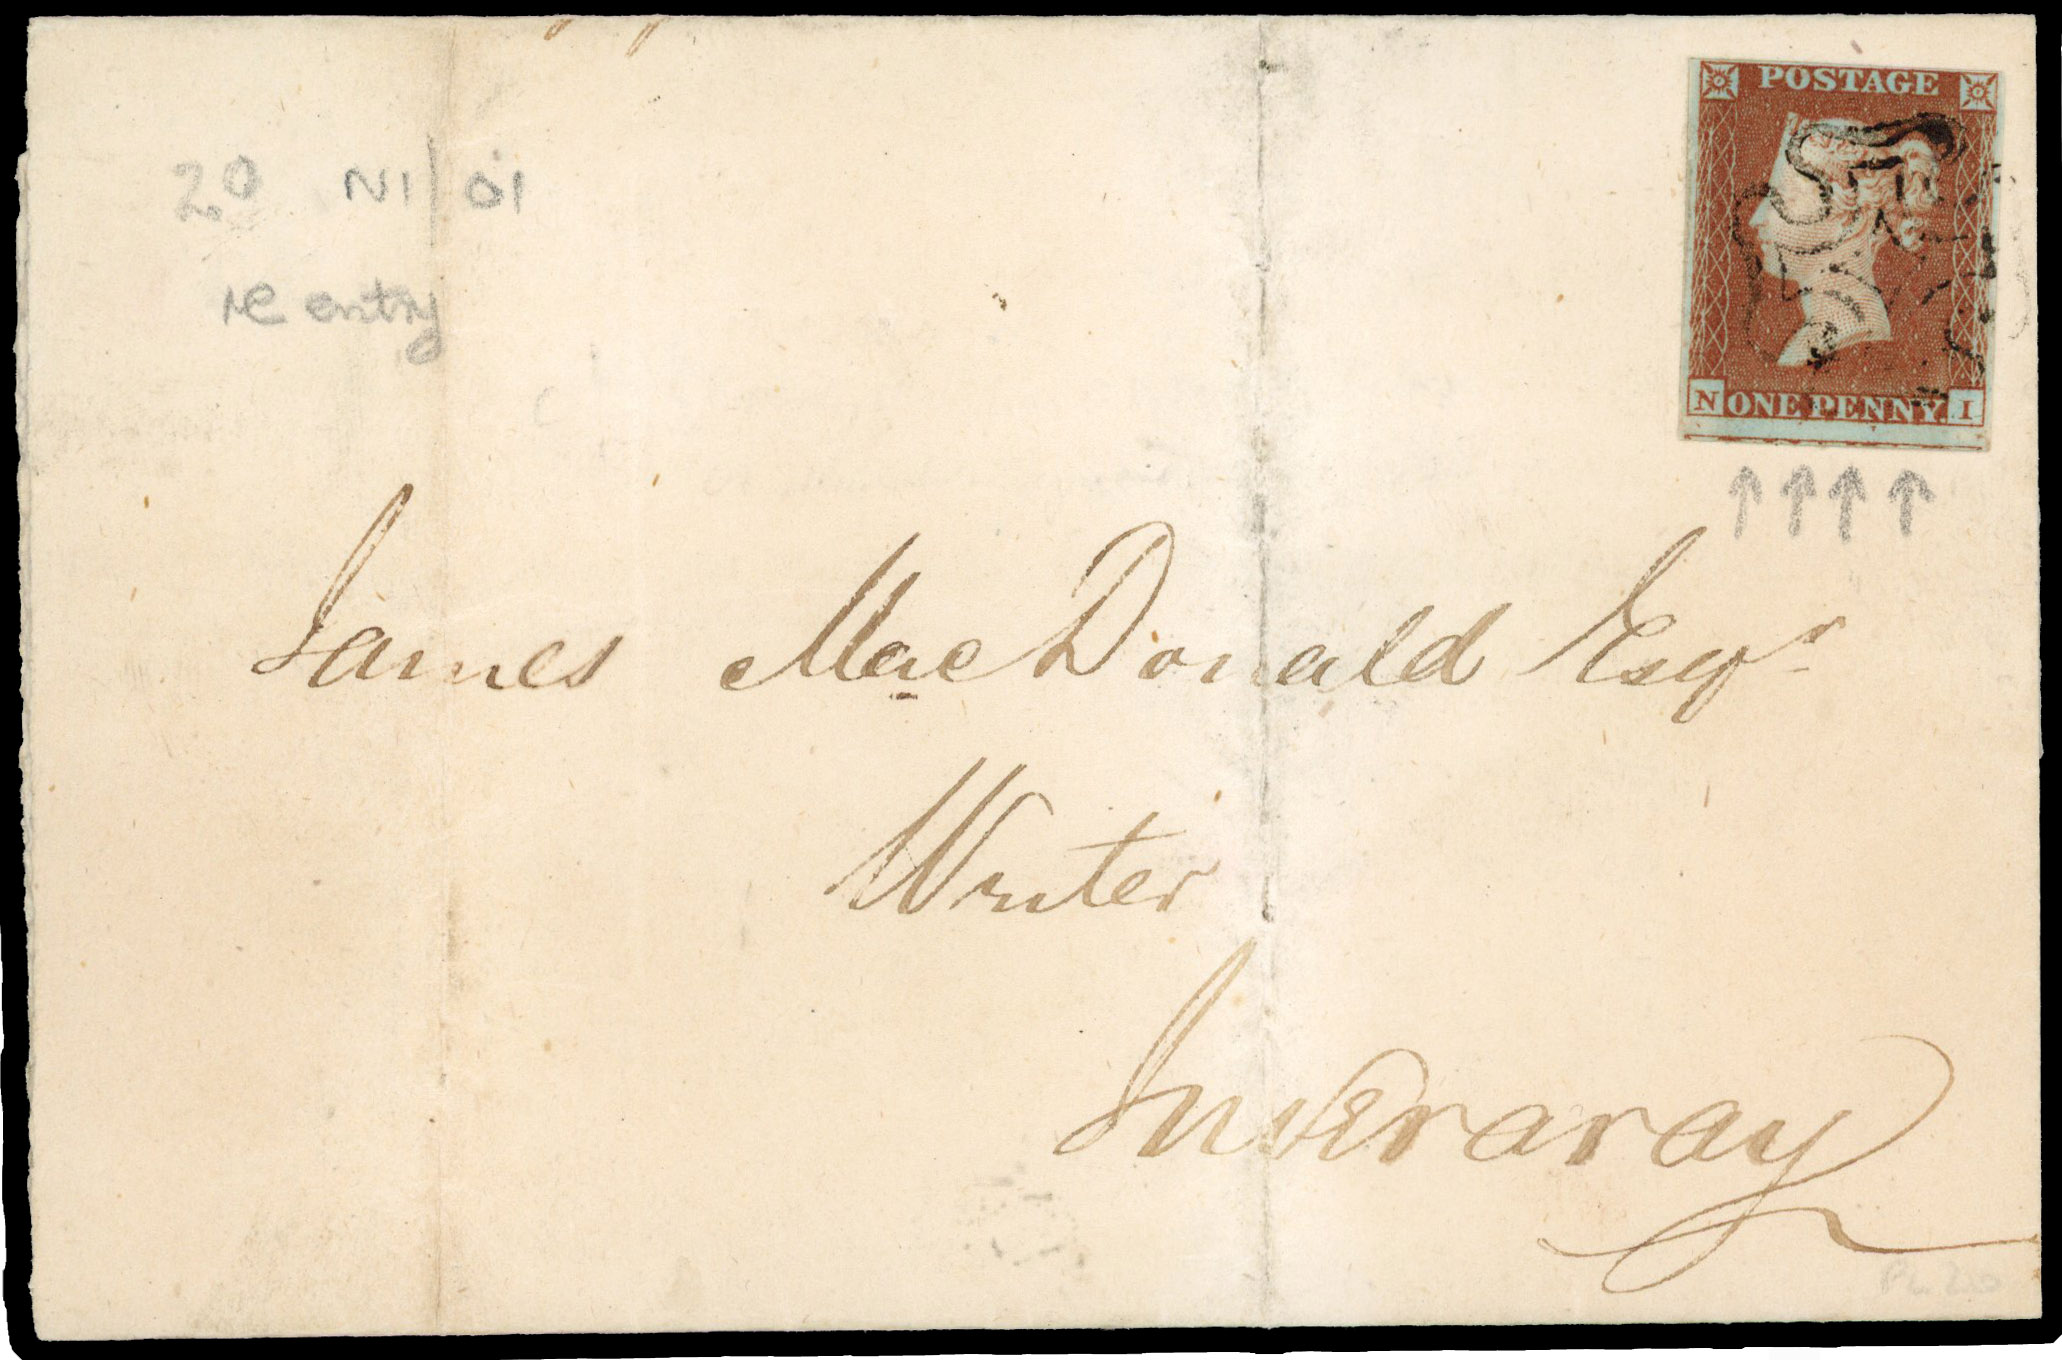 POSTAGE
20 NI/OI
re entry
N ONE PENNY. I
James MacDonald Esqr.
Writer
Inveraray
PL 20